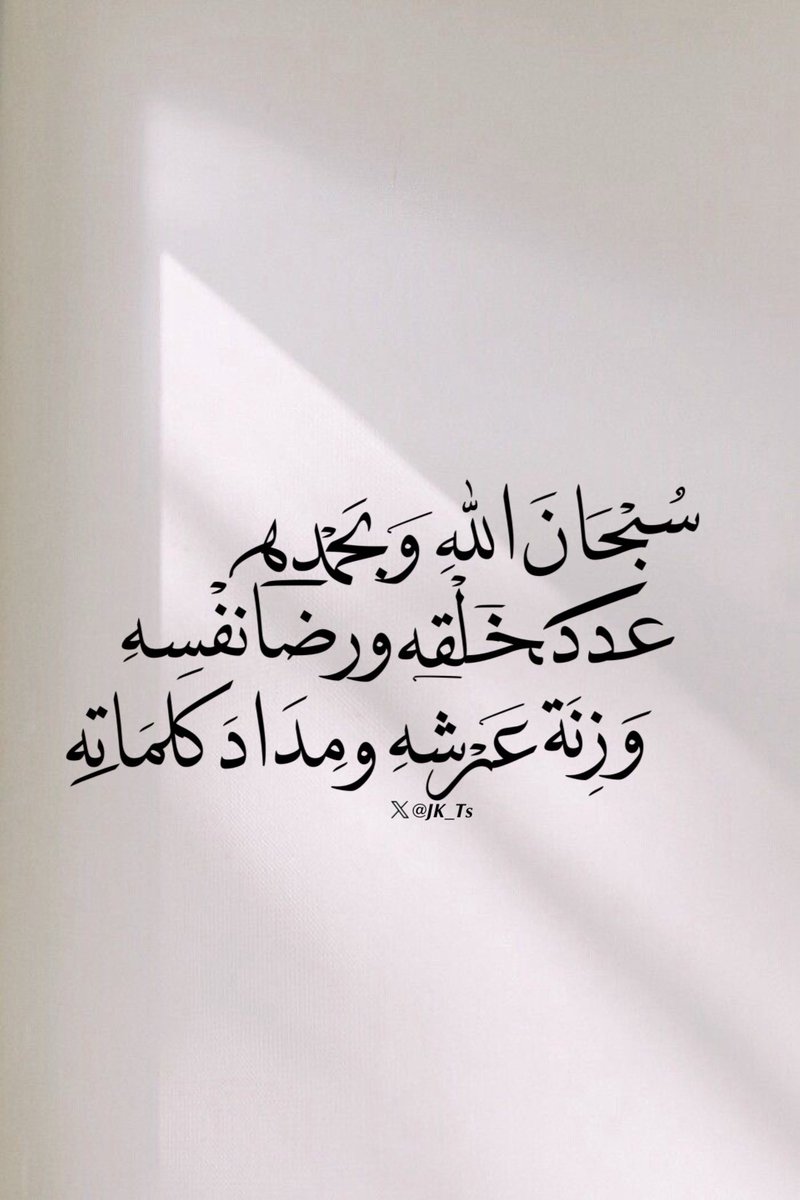 سُبْحَانَ اللهِ وَبَحَمْدِهِ
عدد خَلْقِه ورضا نفْسِهِ
وَزِنَة عَرْشهِ ومِدَادَ كلمَاتِهِ
𝕏 @JK_Ts